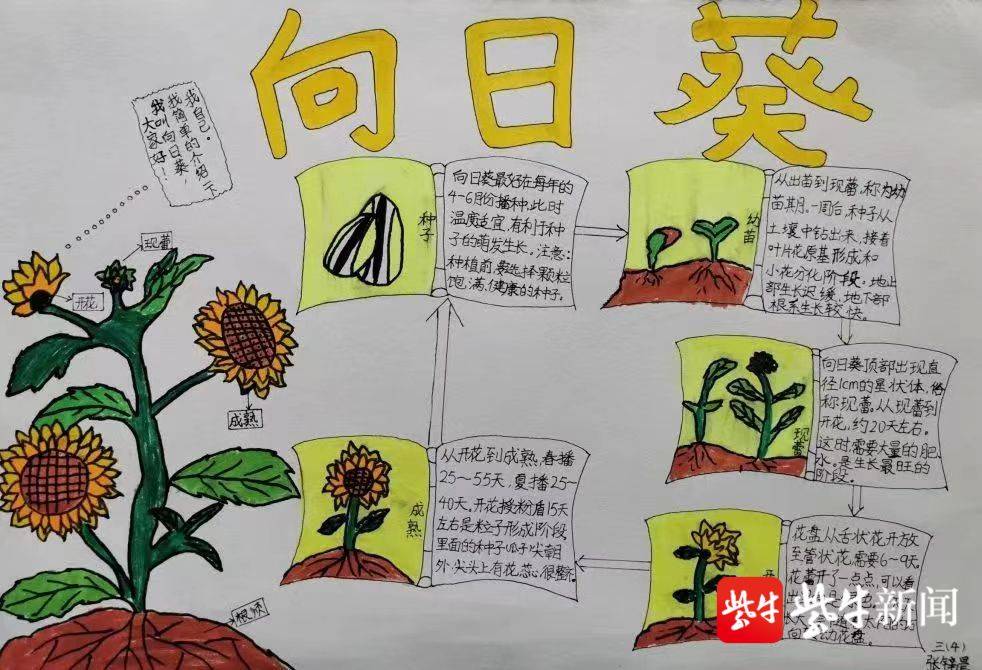 向日葵
大家好！
我叫向日葵，
我简单的介绍一下
我自己。
现蕾
开花
成熟
根系
种子
向日葵最好在每年的
4-6月份播种,此时
温度适宜,有利于种
子的萌发生长。注意:
种植前,要选择颗粒
饱满,健康的种子。
幼苗
从出苗到现蕾,称为幼
苗期。一周后,种子从
土壤中钻出来,接着
叶片花原基形成和
小花分化阶段。地上
部生长迟缓,地下部
根系生长较快。
现蕾
向日葵顶部出现直
径1cm的星状体,俗
称现蕾。从现蕾到
开花,约20天左右。
这时需要大量的肥
水。是生长最旺的
阶段。
花盘从舌状花开放
至管状花,需要6~9天。
花蕾开了一点点,可以看
花盘。
成熟
从开花到成熟,春播
25~55天,夏播25~
40天。开花授粉后15天
左右是籽粒形成阶段,
里面的种子瓜子尖朝
外,尖头上有花蕊,很整齐。
紫牛
紫牛新闻
三(4)